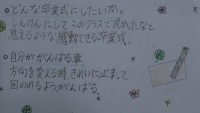 ○どんな卒業式にしたいか。
しんけんにしてこのクラスで良かったなと
思えるような感動できる卒業式。
○自分ががんばる事
方向を変える時きれいに止まって
回れるようがんばる。